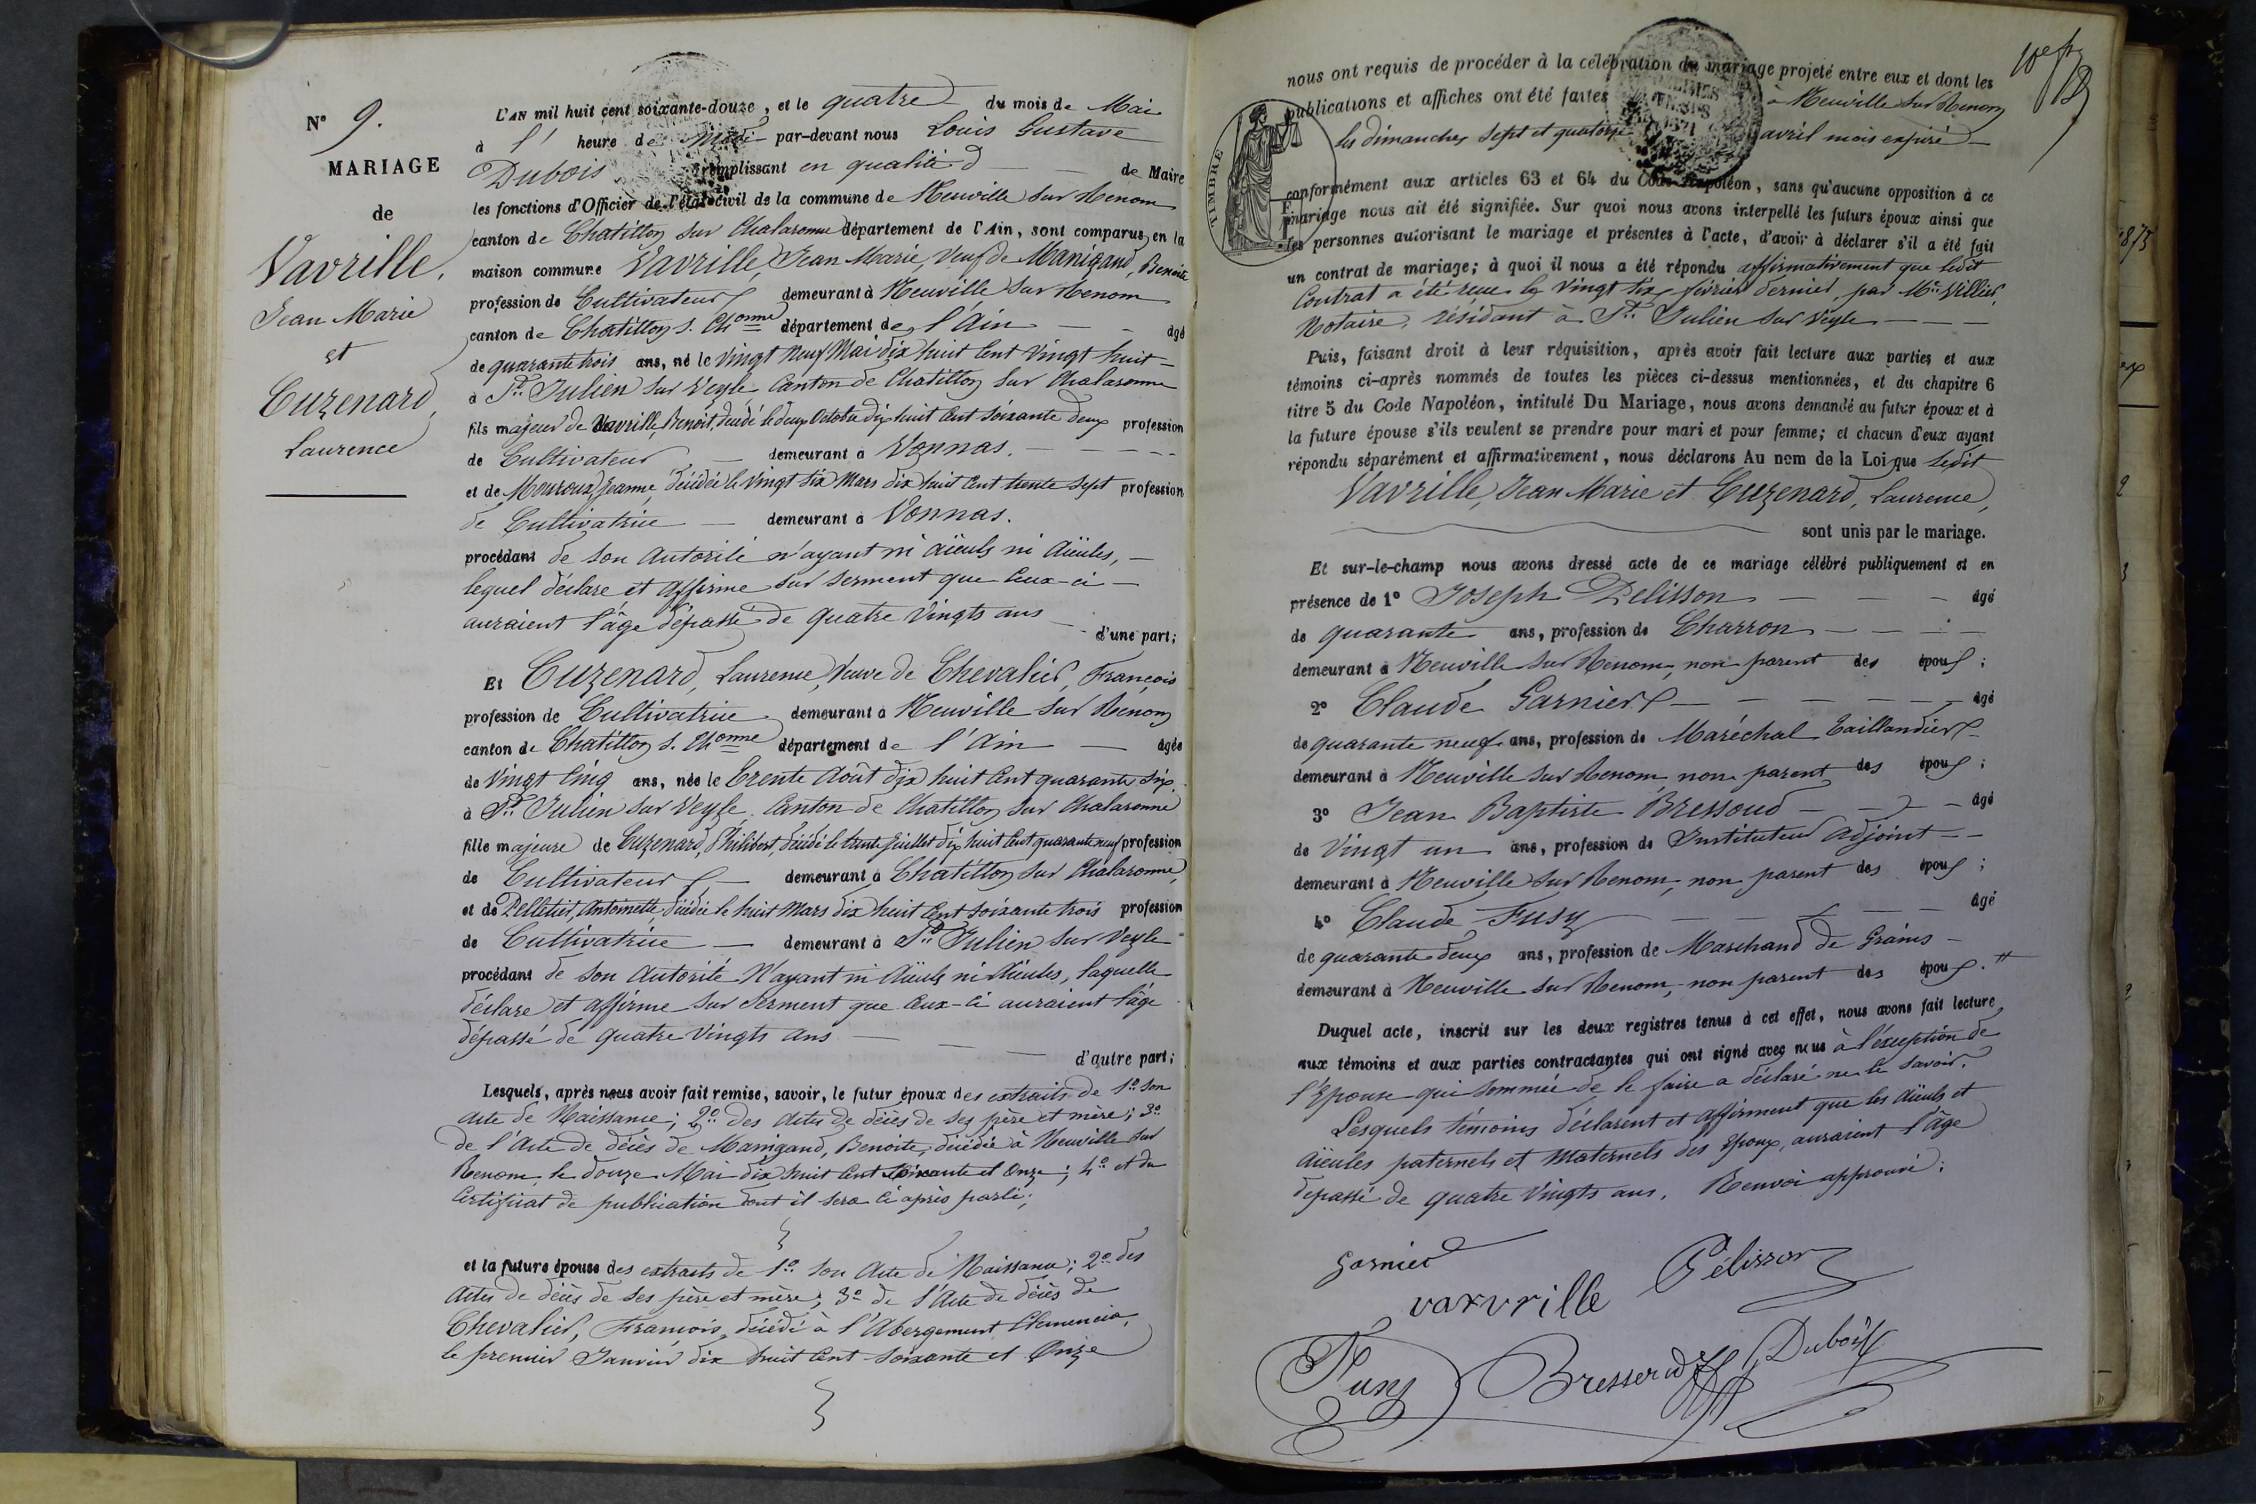 N° 9.
MARIAGE
de
Vavrille,
Jean Marie
et
Cuzenard,
Laurence
L'AN mil huit cent soixante-douze, et le quatre du mois de Mai
à l' heure de midi par-devant nous Louis Gustave
Dubois remplissant en qualité d — de Maire
les fonctions d'Officier de l'état-civil de la commune de Neuville sur Renom
canton de Chatillon sur Chalaronne département de l'Ain, sont comparus en la
maison commune Vavrille, Jean Marie, Veuf de Manigand, Benoite
profession de Cultivateur demeurant à Neuville sur Renom
canton de Chatillon s. Chonne département de l'Ain — — âgé
de quarante trois ans, né le Vingt Neuf Mai dix huit Cent Vingt huit —
à St. Julien sur Veyle, Canton de Chatillon sur Chalaronne
fils majeur de Vavrille, Benoit, décédé le deux Octobre dix huit Cent soixante deux profession
de Cultivateur — demeurant à Vonnas. — — — —
et de Mouroux, Jeanne, décédée le Vingt Six Mars dix huit Cent trente sept profession
de Cultivatrice — demeurant à Vonnas.
procédant de son Autorité n'ayant ni aïeuls ni Aïeules, —
lequel déclare et affirme sur serment que Ceux-ci —
auraient l'âge dépassé de quatre Vingts ans — d'une part;
Et Cuzenard, Laurence, Veuve de Chevalier, François
profession de Cultivatrice demeurant à Neuville sur Renom
canton de Chatillon s. Chonne département de l'Ain — âgée
de Vingt Cinq ans, née le Trente Août dix huit Cent quarante Six
à St. Julien sur Veyle, Canton de Chatillon sur Chalaronne
fille majeure de Cuzenard, Philibert, décédé le trente Juillet dix huit Cent quarante neuf profession
de Cultivateur — demeurant à Chatillon sur Chalaronne,
et de Pelletier, Antoinette, décédée le huit Mars dix huit Cent soixante trois profession
de Cultivatrice — demeurant à St. Julien sur Veyle
procédant de son Autorité N'ayant ni Aïeuls ni Aïeules, laquelle
déclare et affirme sur Serment que Ceux-Ci auraient l'âge
dépassé de quatre Vingts ans — — —
d'autre part;
Lesquels, après nous avoir fait remise, savoir, le futur époux des extraits de 1° son
Acte de Naissance; 2° des Actes de décès de ses père et mère; 3°
de l'Acte de décès de Manigand, Benoite, décédée à Neuville sur
Renom le douze Mai dix huit Cent soixante et Onze; 4° et du
Certificat de publication dont il sera Ci après parlé;
et la future épouse des extraits de 1° son Acte de Naissance; 2° des
Actes de décès de ses père et mère; 3° de l'Acte de décès de
Chevalier, François, décédé à l'Abergement Clemencia,
le premier Janvier dix huit Cent soixante et Onze
nous ont requis de procéder à la célébration du mariage projeté entre eux et dont les
publications et affiches ont été faites à Neuville sur Renom
les dimanches Sept et quatorze avril mois expiré —
TIMBRE
conformément aux articles 63 et 64 du Code Napoléon, sans qu'aucune opposition à ce
mariage nous ait été signifiée. Sur quoi nous avons interpellé les futurs époux ainsi que
les personnes autorisant le mariage et présentes à l'acte, d'avoir à déclarer s'il a été fait
un contrat de mariage; à quoi il nous a été répondu affirmativement que ledit
Contrat a été reçu le Vingt Six février dernier, par Me. Villier,
Notaire, résidant à St. Julien sur Veyle — — —
Puis, faisant droit à leur réquisition, après avoir fait lecture aux parties et aux
témoins ci-après nommés de toutes les pièces ci-dessus mentionnées, et du chapitre 6
titre 5 du Code Napoléon, intitulé Du Mariage, nous avons demandé au futur époux et à
la future épouse s'ils veulent se prendre pour mari et pour femme; et chacun d'eux ayant
répondu séparément et affirmativement, nous déclarons Au nom de la Loi que ledit
Vavrille, Jean Marie et Cuzenard, Laurence,
sont unis par le mariage.
Et sur-le-champ nous avons dressé acte de ce mariage célébré publiquement et en
présence de 1° Joseph Pelisson — — — âgé
de quarante ans, profession de Charron — — —
demeurant à Neuville sur Renom, non parent des époux;
2° Claude Garnier — — — — — âgé
de quarante neuf ans, profession de Maréchal Taillandier —
demeurant à Neuville sur Renom non parent des époux;
3° Jean Baptiste Bressoud — — — âgé
de Vingt un ans, profession de Instituteur Adjoint — —
demeurant à Neuville sur Renom, non parent des époux;
4° Claude Fusy — — — — âgé
de quarante deux ans, profession de Marchand de Grains —
demeurant à Neuville sur Renom, non parent des époux.
Duquel acte, inscrit sur les deux registres tenus à cet effet, nous avons fait lecture
aux témoins et aux parties contractantes qui ont signé avec nous à l'exception de
l'Epouse qui sommée de le faire a déclaré ne le savoir.
Lesquels témoins déclarent et affirment que les Aïeuls et
Aïeules paternels et Maternels des Epoux, auraient l'âge
dépassé de quatre Vingts ans. Renvoi approuvé.
Garnier
Pélisson
vavrille
Fusy
Dubois